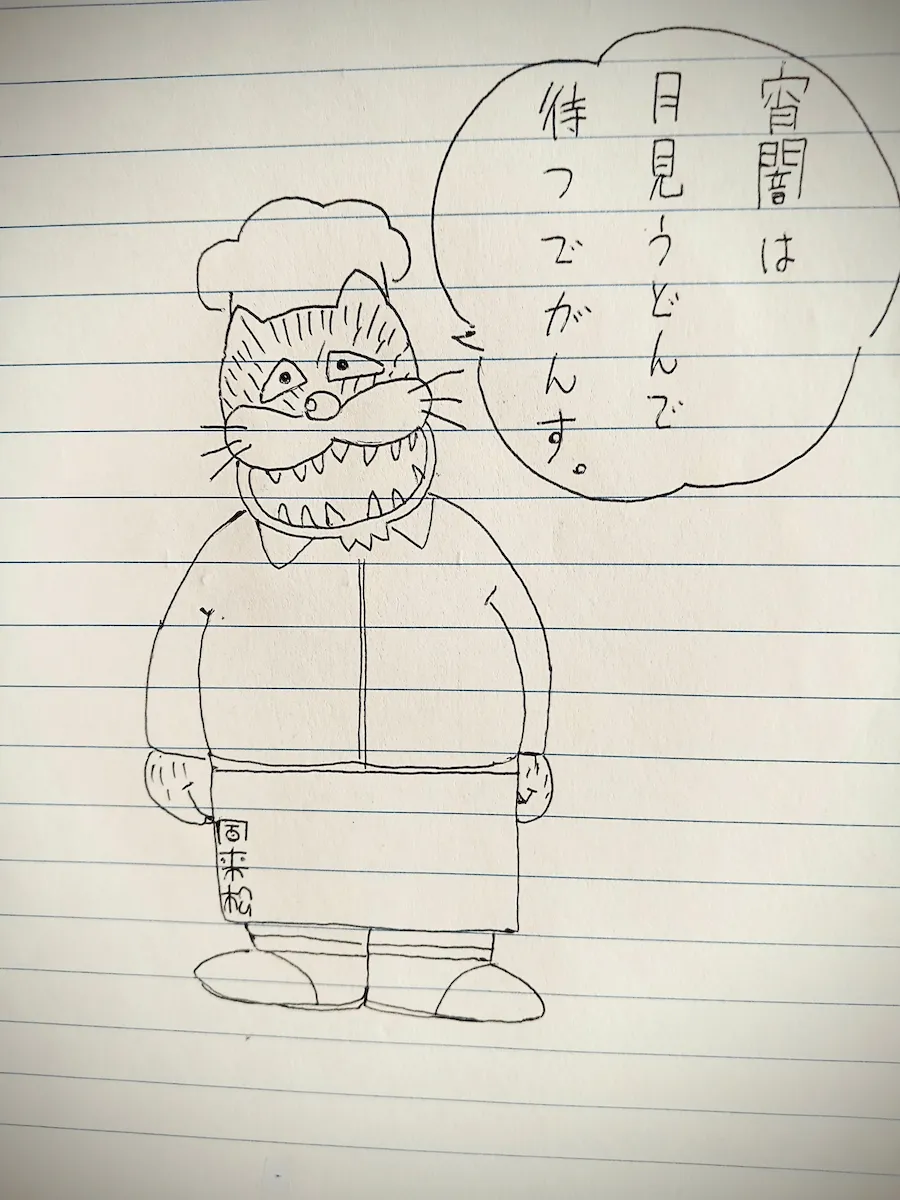 宵闇は
月見うどんで
待つでがんす。
来松